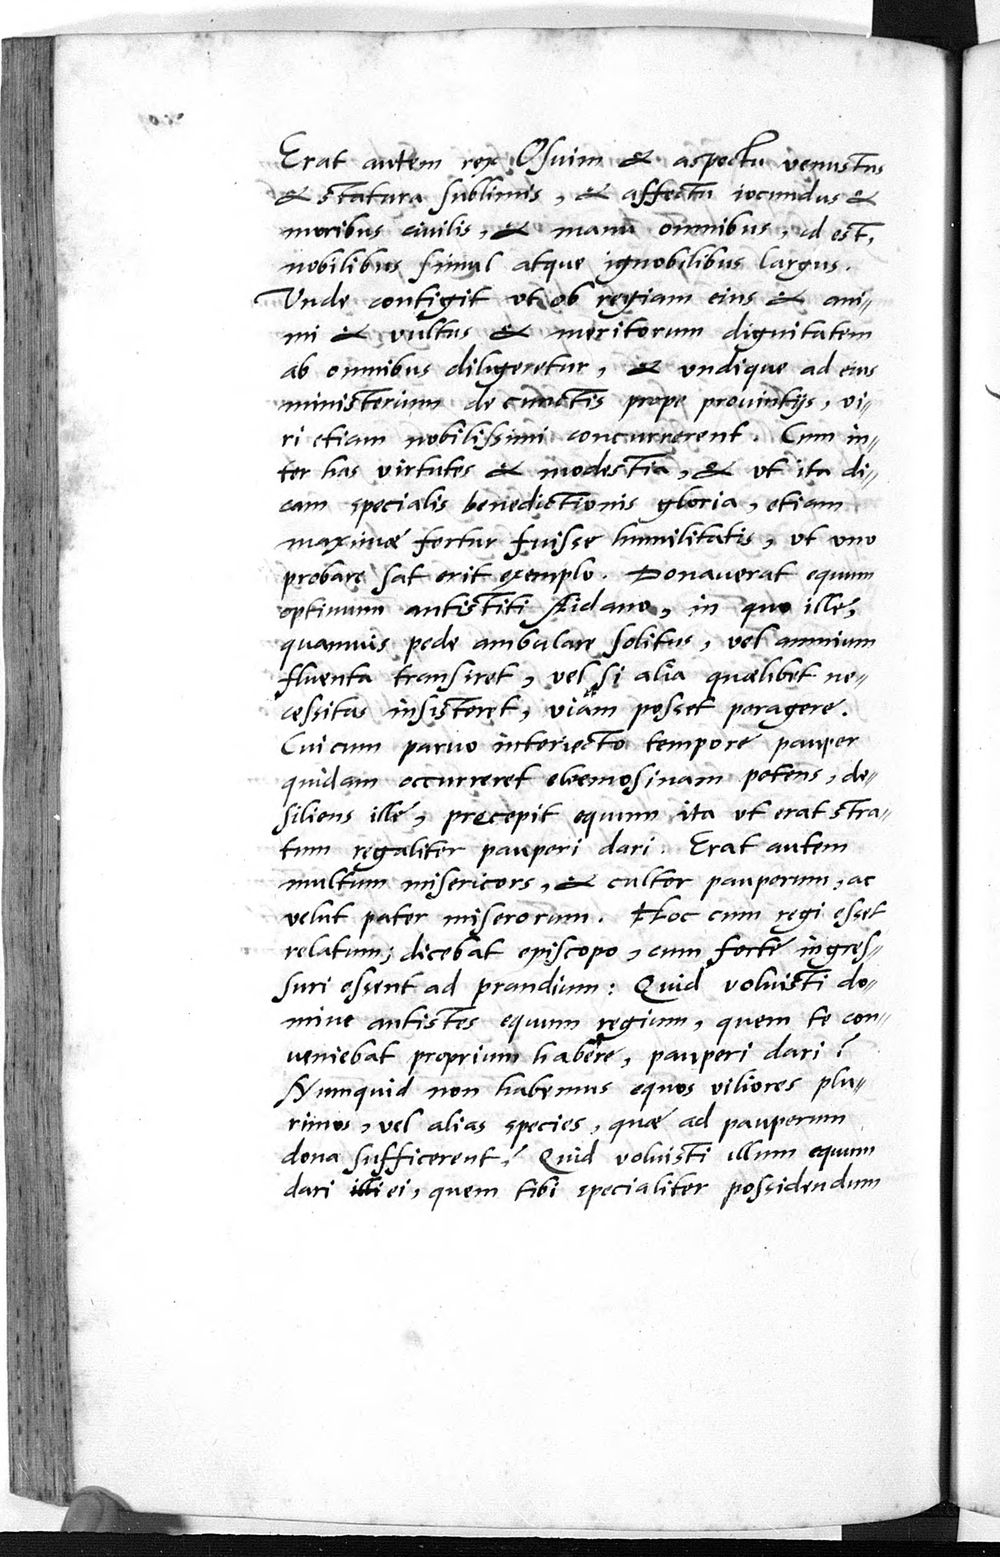 Erat autem rex Osuim & aspectu venustus
& statura sublimis, & affectu iocundus &
moribus civilis, & manu omnibus, id est,
nobilibus simul atque ignobilibus largus.
Unde contigit vt ob regiam eius & ani-
mi & vultus & meritorum dignitatem
ab omnibus diligeretur, & vndique ad eius
ministerium de cunctis prope prouintijs, vi-
ri etiam nobilissimi concurrerent. Cum in-
ter has virtutes & modestia, & vt ita di-
cam specialis benedictionis gloria, etiam
maximae fertur fuisse humilitatis, vt vno
probare sat erit exemplo. Donauerat equum
optimum antistiti Aidano, in quo ille,
quamuis pede ambulare solitus, vel amnium
fluenta transiret, vel si alia quaelibet ne-
cessitas insisteret, viam posset peragere.
Cui cum paruo interiecto tempore pauper
quidam occurreret eleemosinam petens, de-
siliens ille, precepit equum ita vt erat stra-
tum regaliter pauperi dari. Erat autem
multum misericors, & cultor pauperum, ac
velut pater miserorum. Hoc cum regi esset
relatum, dicebat episcopo, cum forte ingres-
suri essent ad prandium: Quid voluisti do-
mine antistes equum regium, quem te con-
ueniebat proprium habere, pauperi dari?
Numquid non habemus equos viliores plu-
rimos, vel alias species, quae ad pauperum
dona sufficerent? Quid voluisti illum equum
dari ei, quem tibi specialiter possidendum